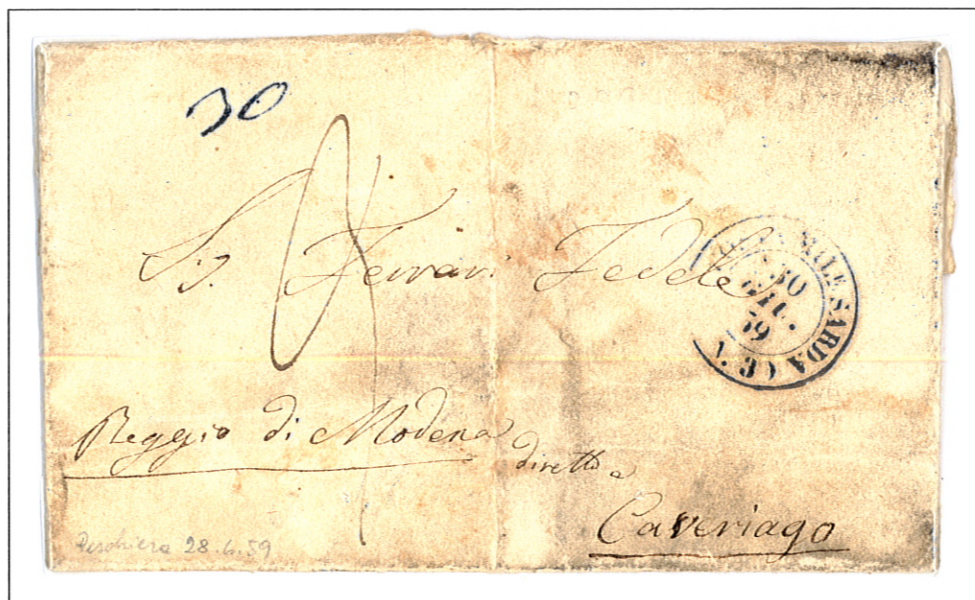 30
Sig Ferrari Fedele
MILE SARDA (CEN
30
GIU.
59
Reggio di Modena
diretto a
Caveriago
Peschiera 28.6.59